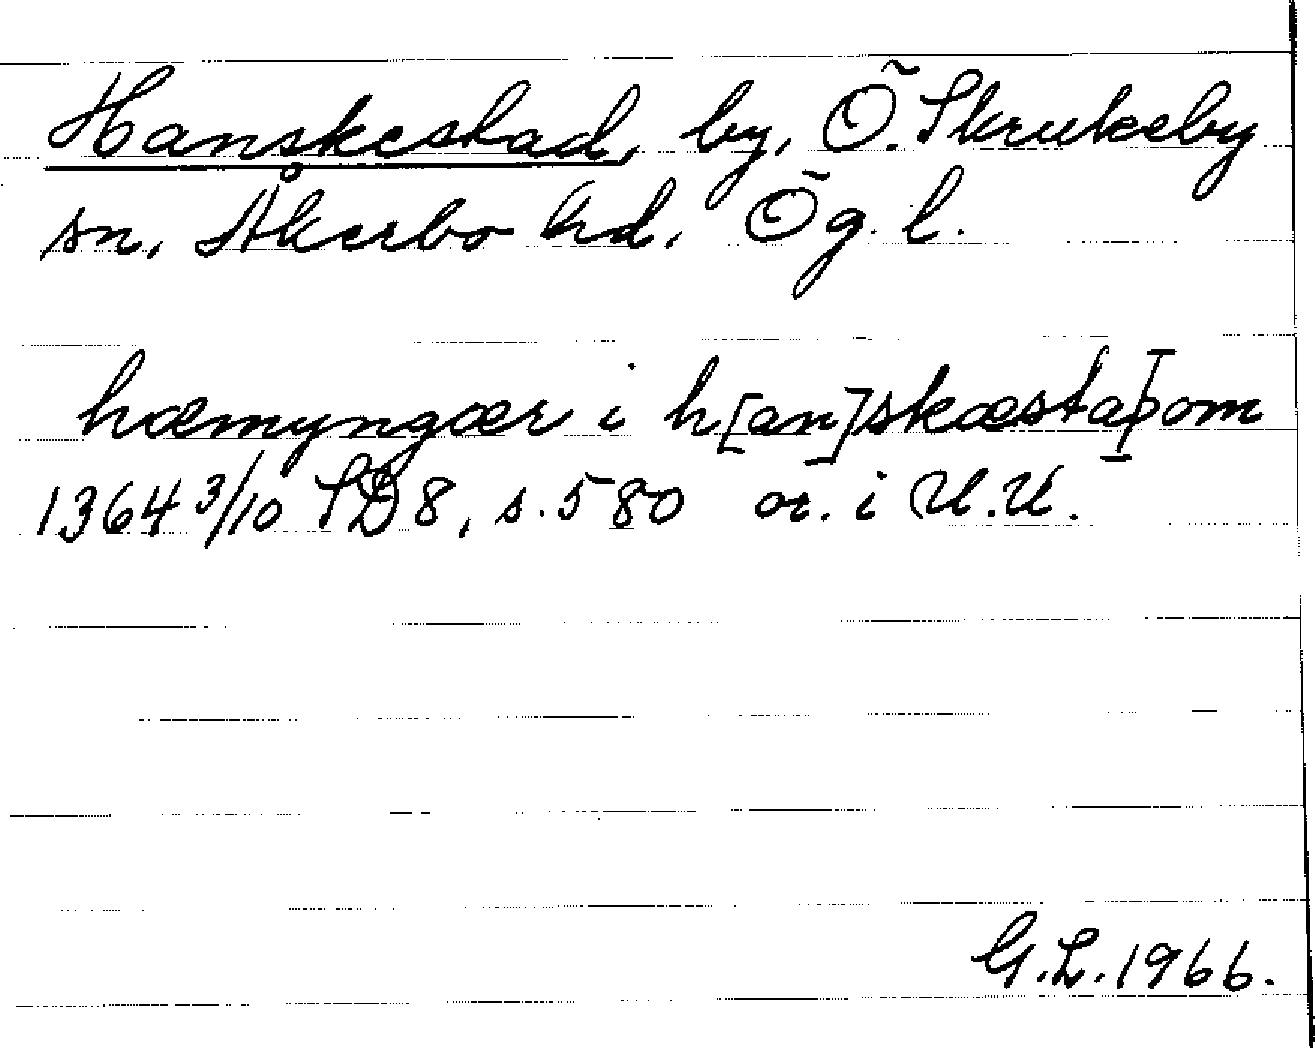 Hanskestad, by, Ö. Skrukeby
sn, Åkerbo hd, Ög. l.
hæmyngær i h[an]skæstaþom
1364 3/10 SD 8, s. 580 or. i U.U.
G.L. 1966.